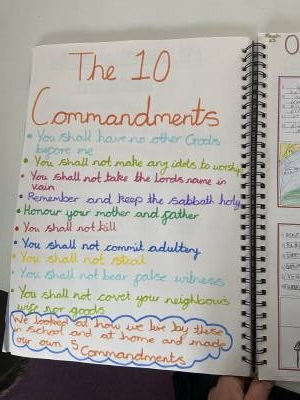 The 10
Commandments
• You shall have no other Gods
before me
• You shall not make any idols to worship
• You shall not take the Lords name in
vain
• Remember and keep the sabbath holy
• Honour your mother and father
• You shall not kill
• You shall not commit adultery
• You shall not steal
• You shall not bear false witness
• You shall not covet your neighbours
wife nor goods
We looked at how we live by these
in school and at home and made
our own 5 Commandments